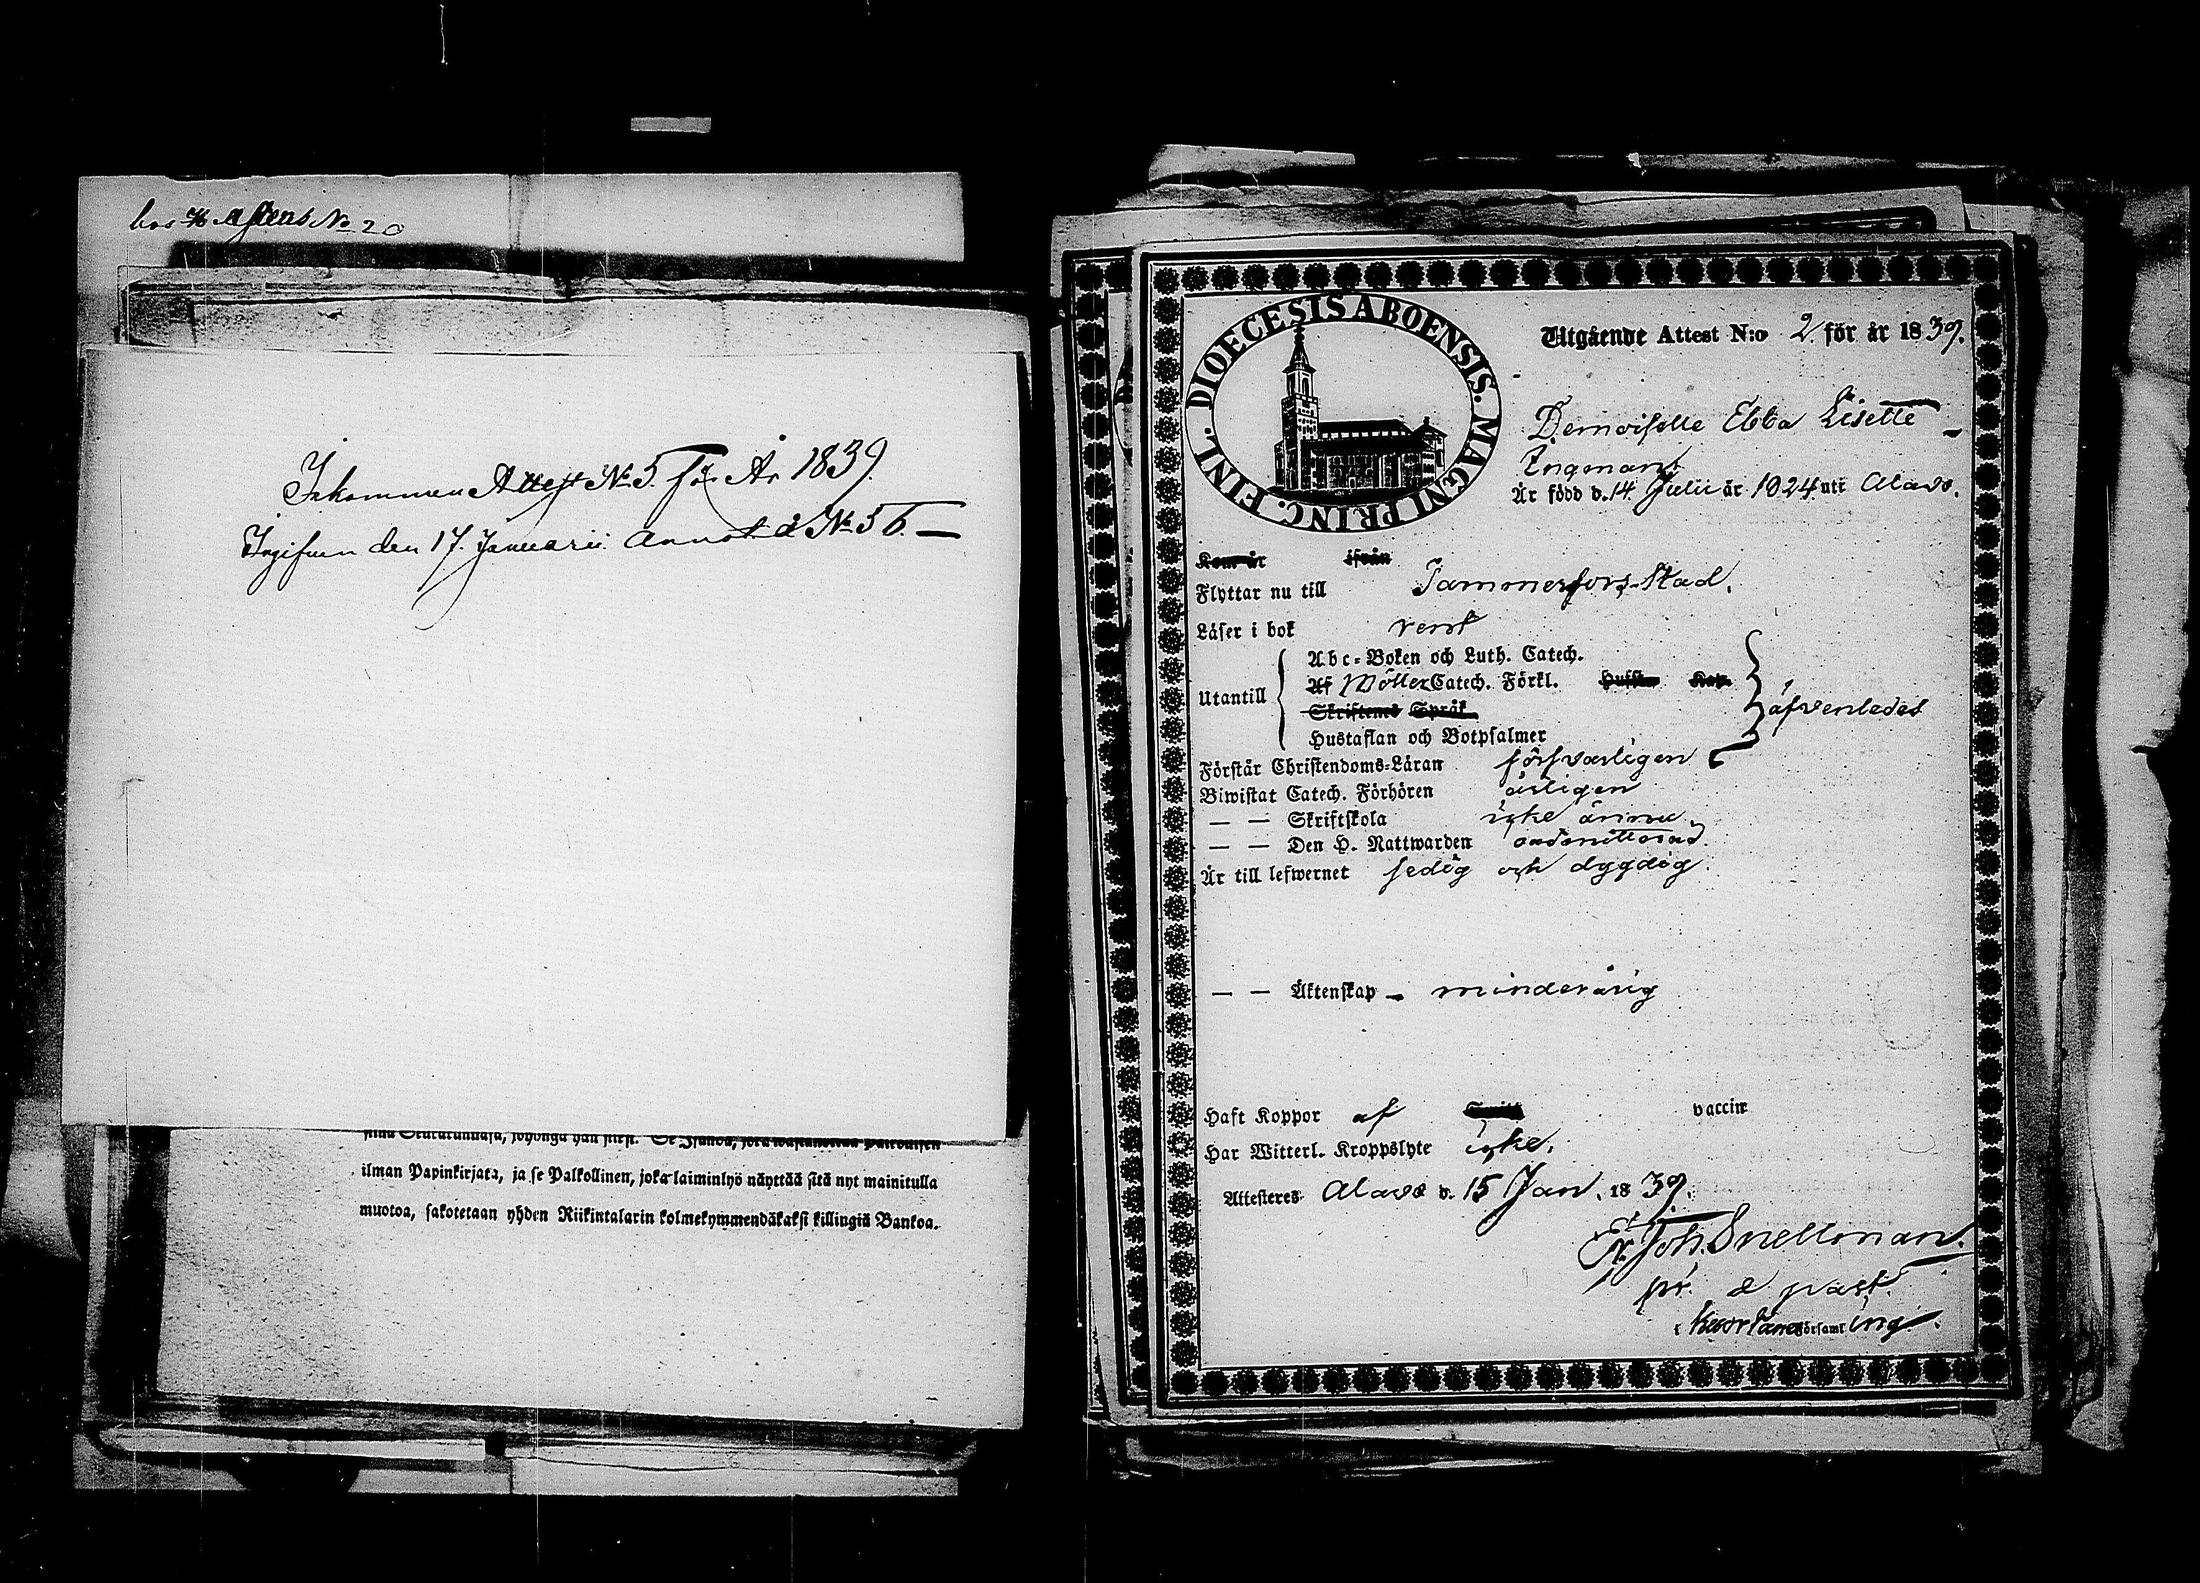 hos H Astens No 20
Inkommen Attest No 5. för År 1839.
Ingifven den 17. Januarii. Annot. å No 56. —
ilman Papinkirjata, ja se Palkollinen, joka laiminlyö näyttää sitä nyt mainitulla
muotoa, sakotetaan yhden Riikintalarin kolmekymmendäkaksi killingiä Bankoa.
DIOECESIS ABOENSIS. MAGNI PRINC. FINL.
Utgående Attest N:o 2. för år 1839.
Demoiselle Ebba Lisette
Ingman
Är född d. 14 Julii år 1824 uti Alavo.
Kom år ifrån
Flyttar nu till Tammerfors Stad.
Läser i bok rent
Abc-Boken och Luth. Catech.
Utantill Af Möller Catech. Förkl. Husst. Kap.
Skriftenes Språk
åfvenledes
Hustaflan och Botpsalmer
Förstår Christendoms-Läran försvarligen
Biwistat Catech. Förhören årligen
— — Skriftskola icke ännu
— — Den H. Nattwarden admitterad.
Är till lefwernet sedig och dygdig.
— — Äktenskap – minderårig
Haft Koppor af vaccin
Har Witterl. Kroppslyte icke.
Attesteres Alavo d. 15 Jan. 1839.
Joh. Snellman.
pr. & past.
i Kuortane församling.